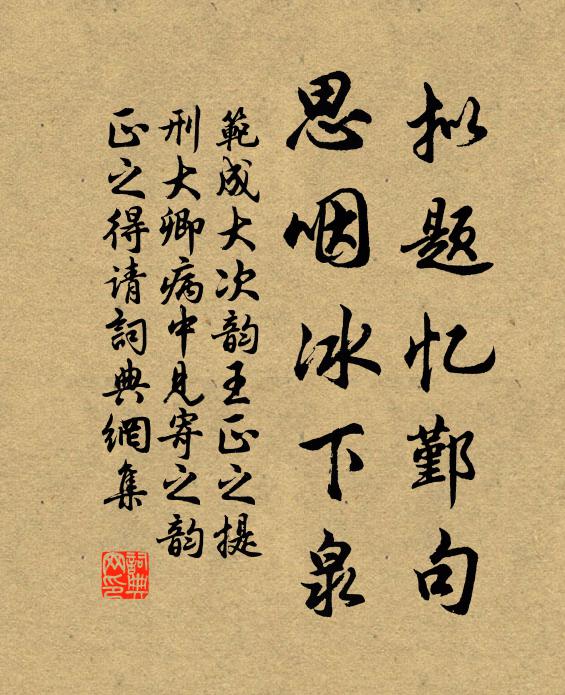 拟题忆鄞句
思咽冰下泉
範成大次韵王正之提
刑大卿病中見寄之韵
正之得请詞典網集
詞典网印